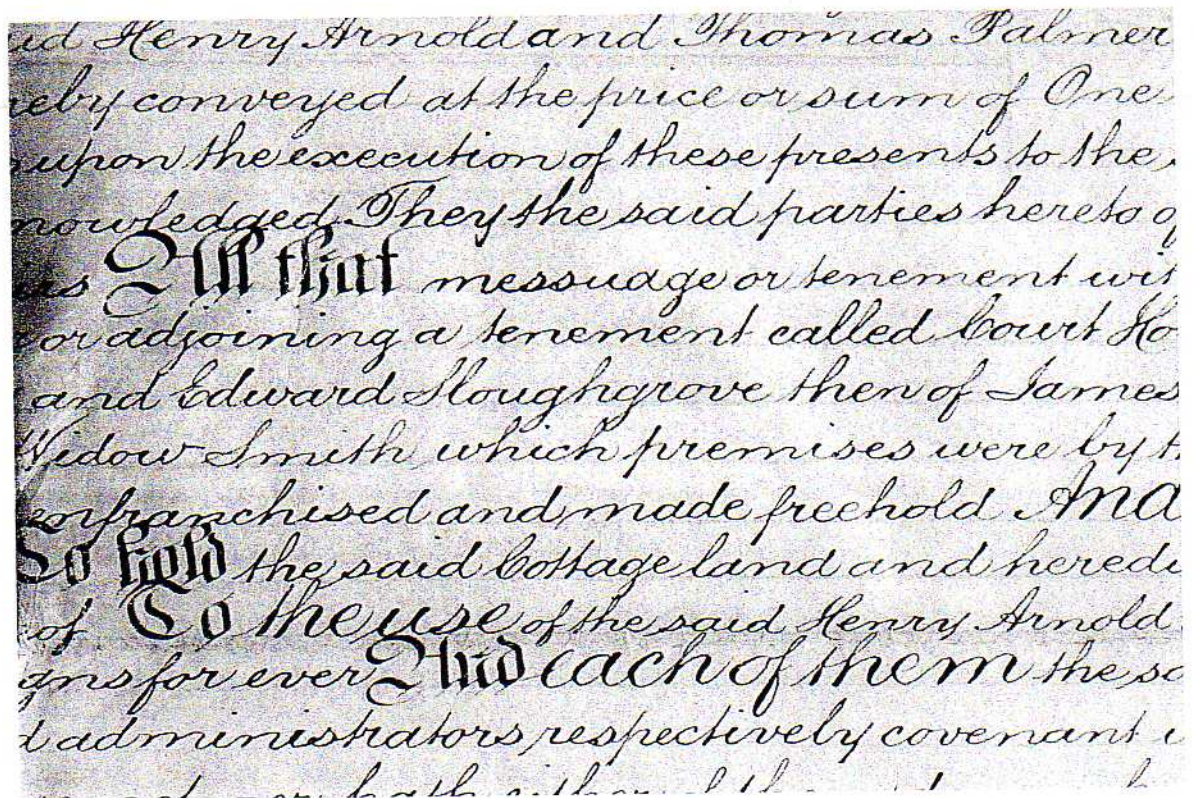 id Henry Arnold and Thomas Palmer
reby conveyed at the price or sum of One
upon the execution of these presents to the
nowledged They the said parties hereto o
irs All that messuage or tenement wit
or adjoining a tenement called Court Ho
and Edward Sloughgrove then of James
Widow Smith which premises were by t
enfranchised and made freehold And
To hold the said Cottage land and heredi
of To the use of the said Henry Arnold
gns for ever And each of them the sa
d administrators respectively covenant